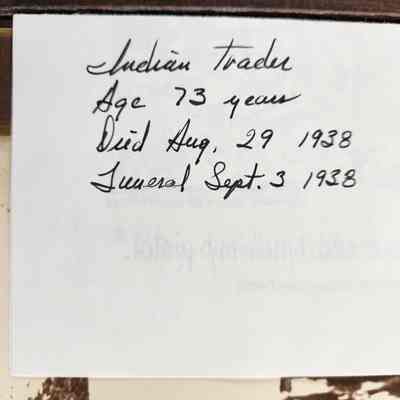 Indian Trader
Age 73 years
Died Aug. 29 1938
Funeral Sept. 3 1938